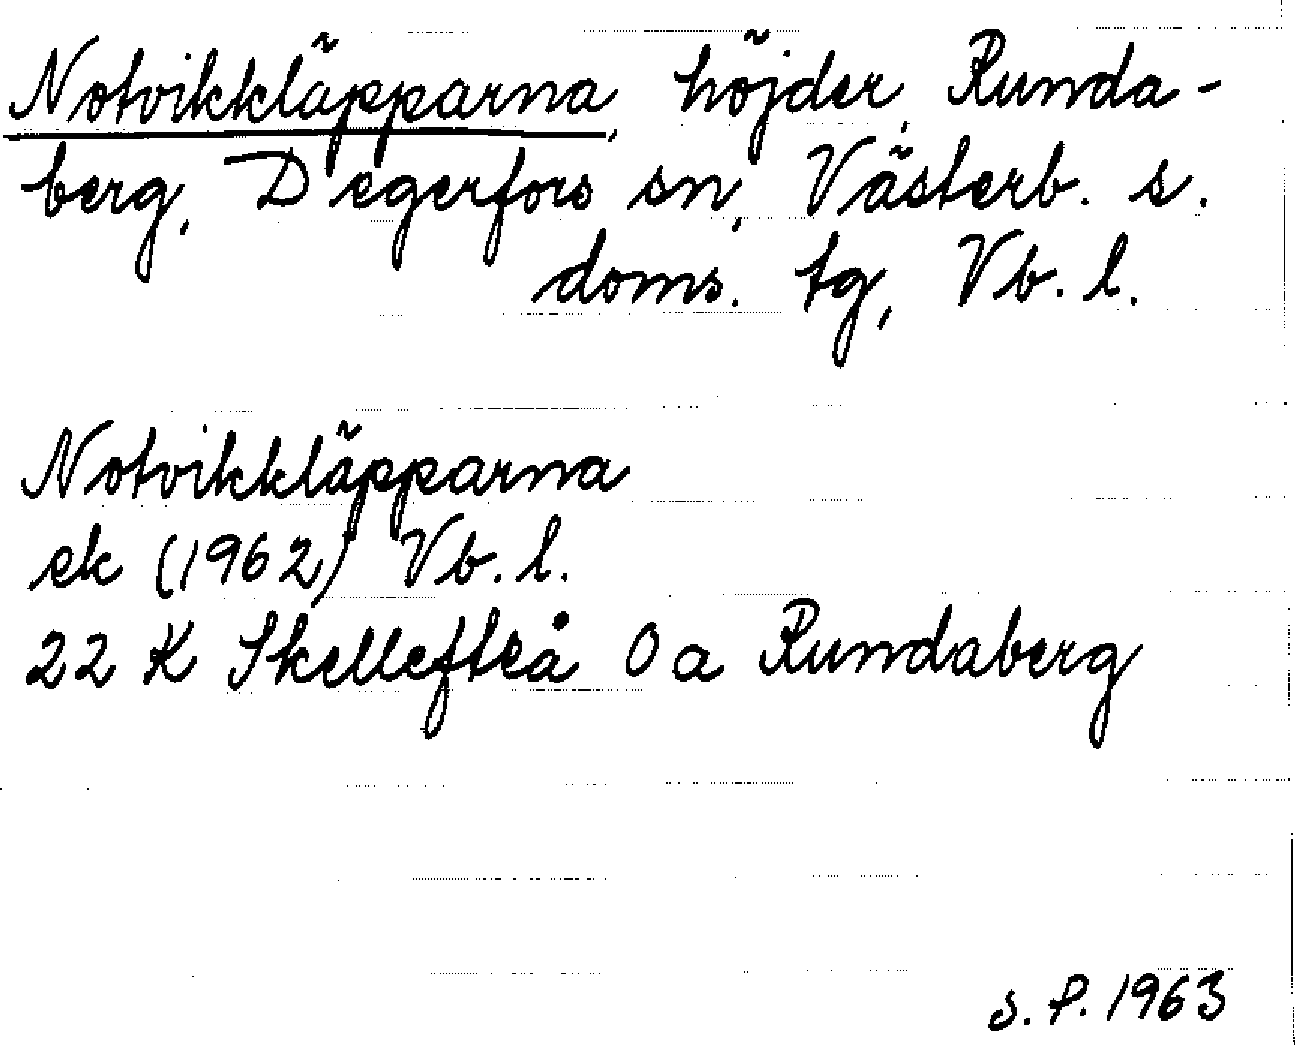 Notvikkläpparna, höjder, Runda-
berg, Degerfors sn, Västerb. s.
doms. tg, Vb. l.
Notvikkläpparna
ek (1962) Vb. l.
22 K Skellefteå 0 a Rundaberg
S. P. 1963